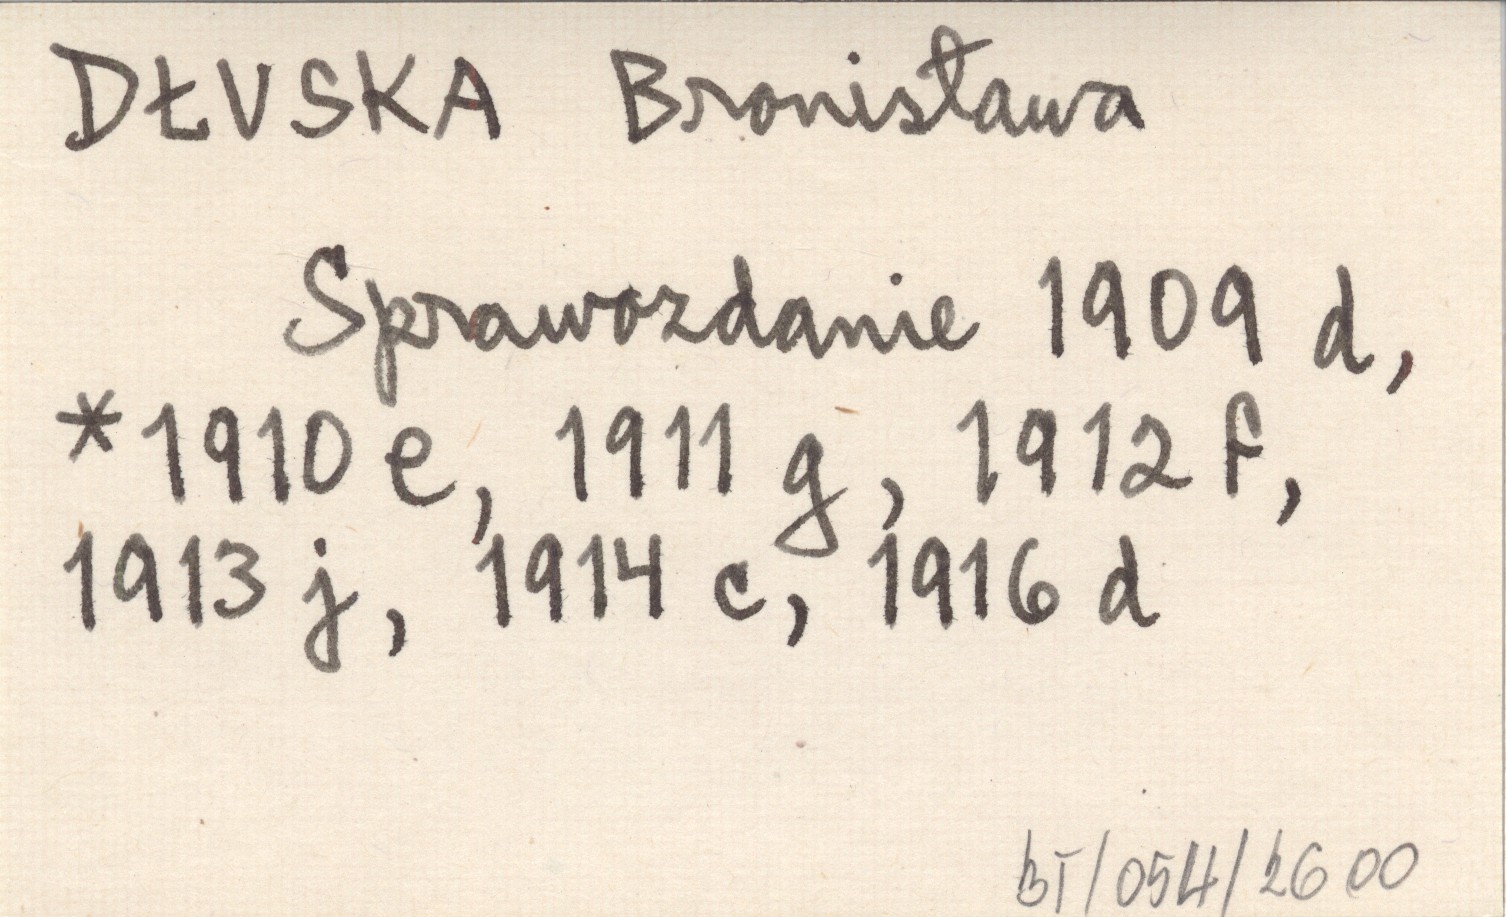 DŁUSKA Bronisława
Sprawozdanie 1909 d,
*1910 e, 1911 g, 1912 f,
1913 j, 1914 c, 1916 d
BT/054/2600